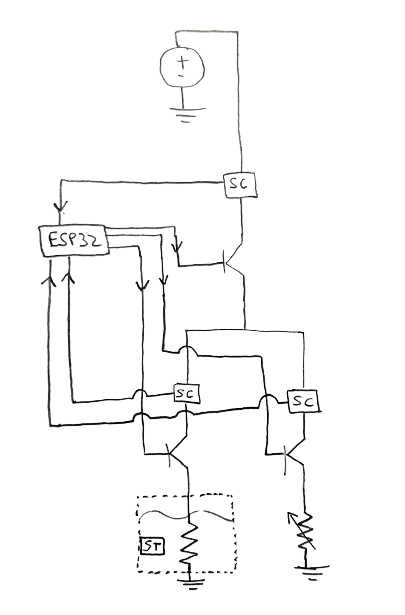 +
-
SC
ESP32
SC
SC
ST